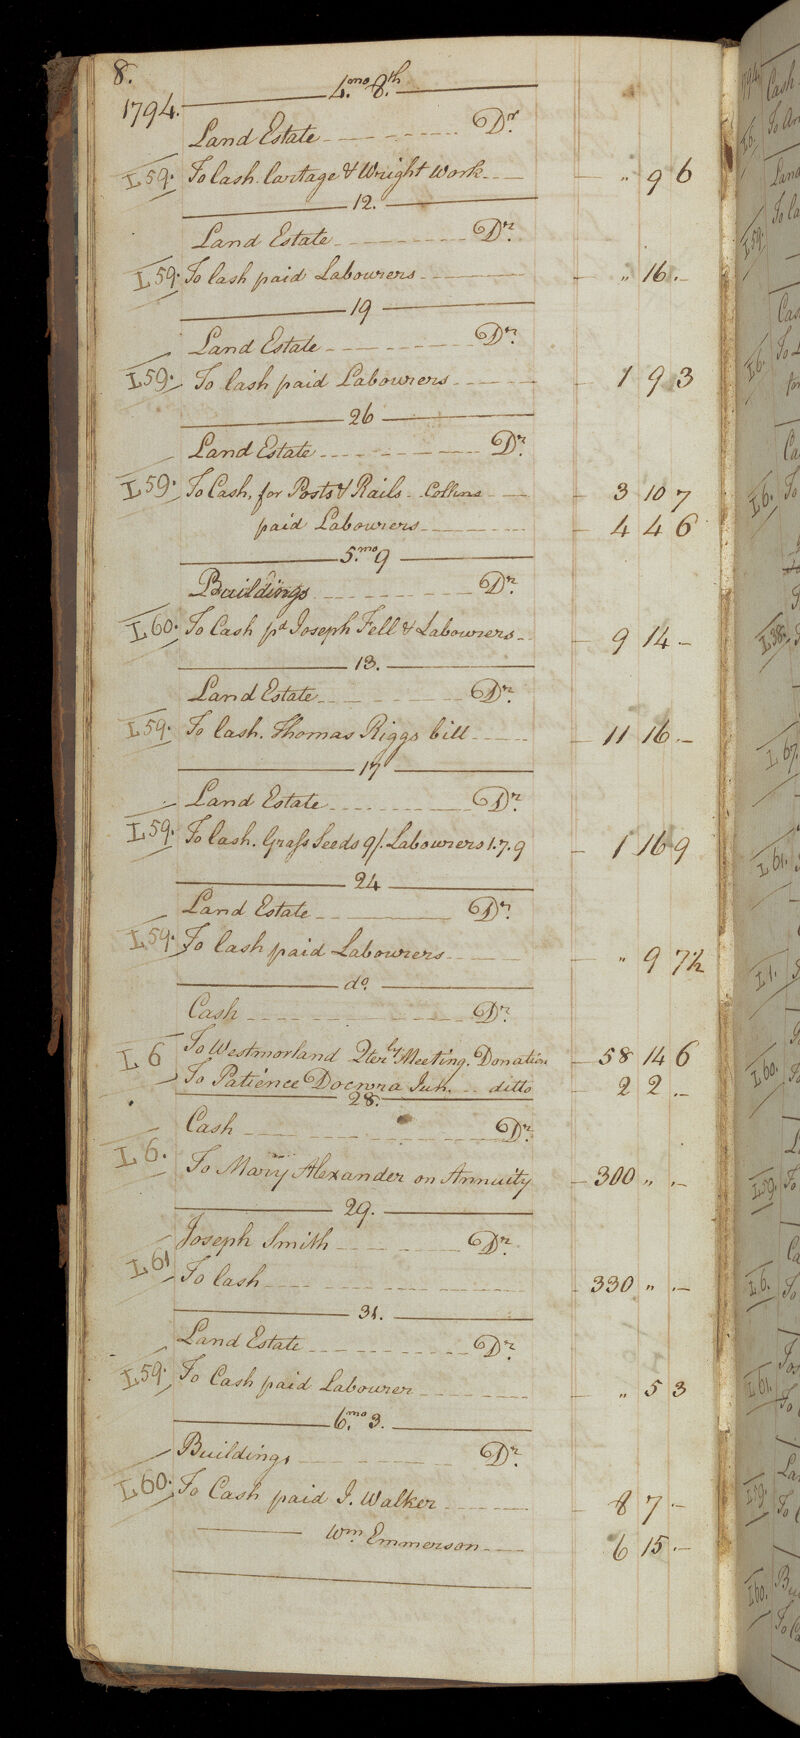 8.
4.mo 8.th
1794.
Land Estate Dr.
L59. To Cash. Cartage & Wright Work „ 9 6
12.
Land Estate Dr.
L59. To Cash paid Labourers „ 16 -
19
Land Estate Dr.
L59. To Cash paid Labourers 1 9 3
26
Land Estate Dr.
L59. To Cash, for Posts & Rails Collins 3 10 7
paid Labourers 4 4 6
5.mo 9
Buildings Dr.
L60. To Cash pd Joseph Fell & Labourers 9 14 -
13.
Land Estate Dr.
L59. To Cash. Thomas Riggs bill 11 16 -
17
Land Estate Dr.
L59. To Cash. Grass Seeds 9/. Labourers 1.7.9 1 16 9
24
Land Estate Dr.
L59. To Cash paid Labourers „ 9 7½
do.
Cash Dr.
L6 To Westmorland Qterly Meeting. Donation 58 14 6
To Patience Docwra Jun. ditto 2 2 -
28.
Cash Dr.
L6. To Mary Alexander on Annuity 300 „ -
29.
Joseph Smith Dr.
L61 To Cash 330 „ -
31.
Land Estate Dr.
L59. To Cash paid Labourer „ 5 3
6.mo 3.
Buildings Dr.
L60. To Cash paid J. Walker 8 7 -
Wm. Emmerson 6 15 -